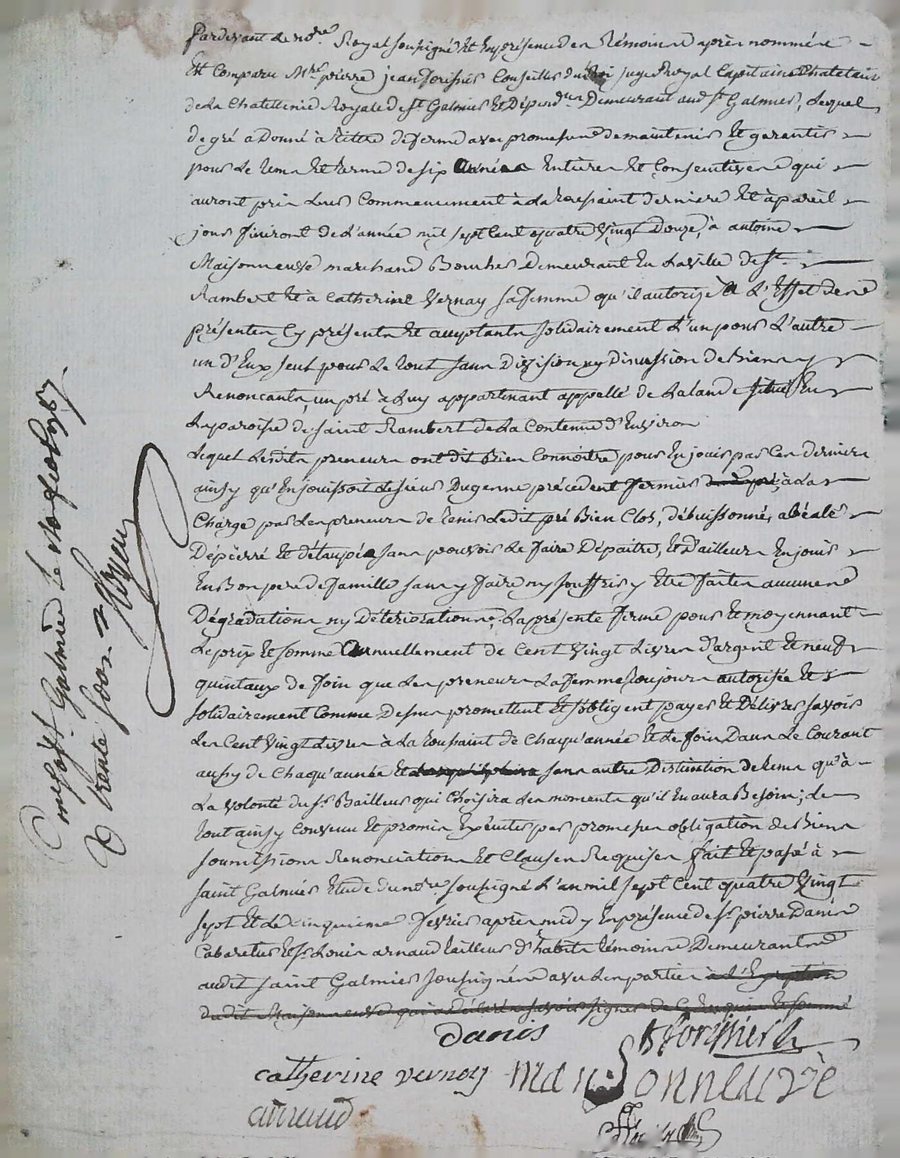 Pardevant le no.re Royal soussigné et en présence des témoins après nommés
Est comparu M.re pierre jean forissier Conseiller du Roi juge Royal Capitaine Chatelain
de la Chatellenie Royale de S.t Galmier et Dépend.ces Demeurant aud. S.t Galmier, Lequel
de gré a donné à titre de ferme avec promesse de maintenir et garantir
pour le tems et terme de six années Entieres et Consecutives qui
auront pris leur Commencement à la toussaint derniere et à pareil
jour finiront de l'année mil sept Cent quatre vingt Douze, à antoine
Maisonneuve marchand Boucher Demeurant En la ville de S.t
Rambert et à Catherine Vernay sa femme qu'il autorise à L'Effet des
présentes Cy présents et acceptants solidairement l'un pour l'autre
un d'Eux seul pour le tout sans Division ny discussion de Biens y
Renoncants, un pré à Luy appartenant appellé de Laland situé En
La paroisse de Saint Rambert de la Contenue d'Environ
Lequel Lesdits preneurs ont dit Bien Connoitre pour En jouir par Ces derniers
ainsy qu'En jouissoit le sieur Dugenne précédent fermier à la
Charge par les preneurs de tenir ledit pré Bien Clos, débuissonné,
Dépierré et détaupé sans pouvoir le faire Dépaitre, et D'ailleurs En jouir
En Bon pere de famille sans y faire ny souffrir y Etre faites aucunes
Dégradations ny Détériorations, La présente ferme pour et moyennant
Le prix et somme annuellement de Cent vingt Livres d'argent et neuf
quintaux de foin que les preneurs La femme toujours autorisée et
solidairement Comme Dessus promettent et s'obligent payer et Délivrer savoir
Les Cent vingt Livres à la toussaint de Chaqu'année et le foin Dans Le Courant
aussy de Chaqu'année sans autre Distinction de tems qu'à
La volonté du S.r Bailleur qui Choisira des momens qu'il En aura Besoin; le
tout ainsy Convenu et promis Exécuter par promesses obligation de Biens
soumissions Renonciations et Clauses Requises fait et passé à
Saint Galmier Etude du no.re soussigné l'an mil sept Cent quatre vingt
sept et le cinquieme fevrier après midy En présence de S.r pierre Danis
Cabaretier et S.r Louis arnaud tailleur d'habits témoins Demeurant
audit Saint Galmier soussignés avec les parties à l'Exception
dudit Maisonneuve qui a déclaré savoir signer de ce Enquis et sommé
danis
forissier
catherine vernay
maisonneuve
arnaud
S.t Galmier le
trente sous